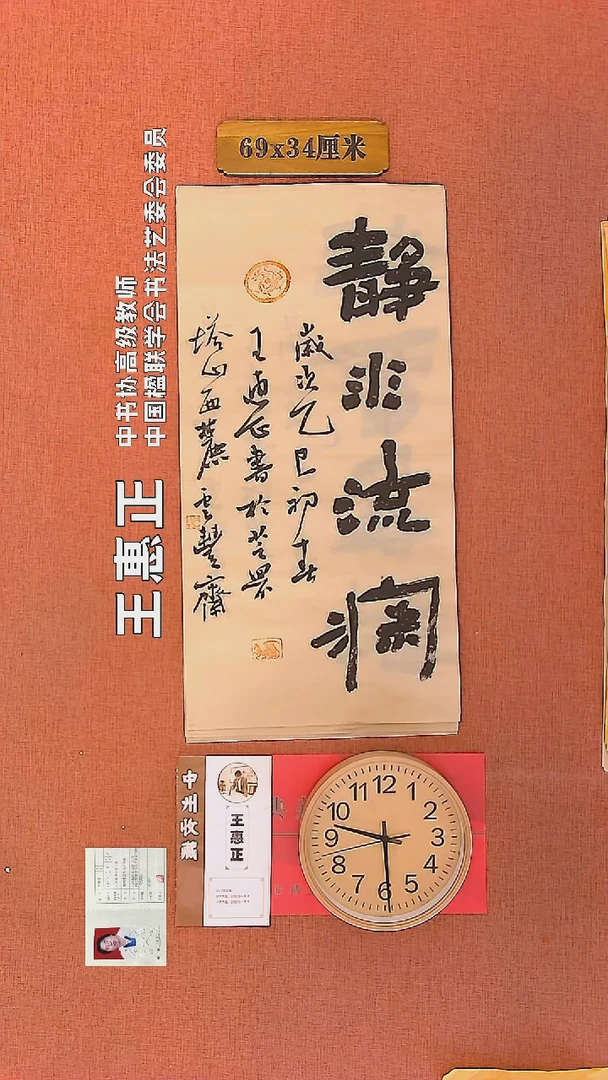 69x34厘米
中书协高级教师
中国楹联学会书法艺委会委员
王惠正
静水流澜
歲次乙巳初春
王惠正書於芝罘
塔山西麓雲豐齋
收藏
王惠正
12 1 2 3 4 5 6 7 8 9 10 11